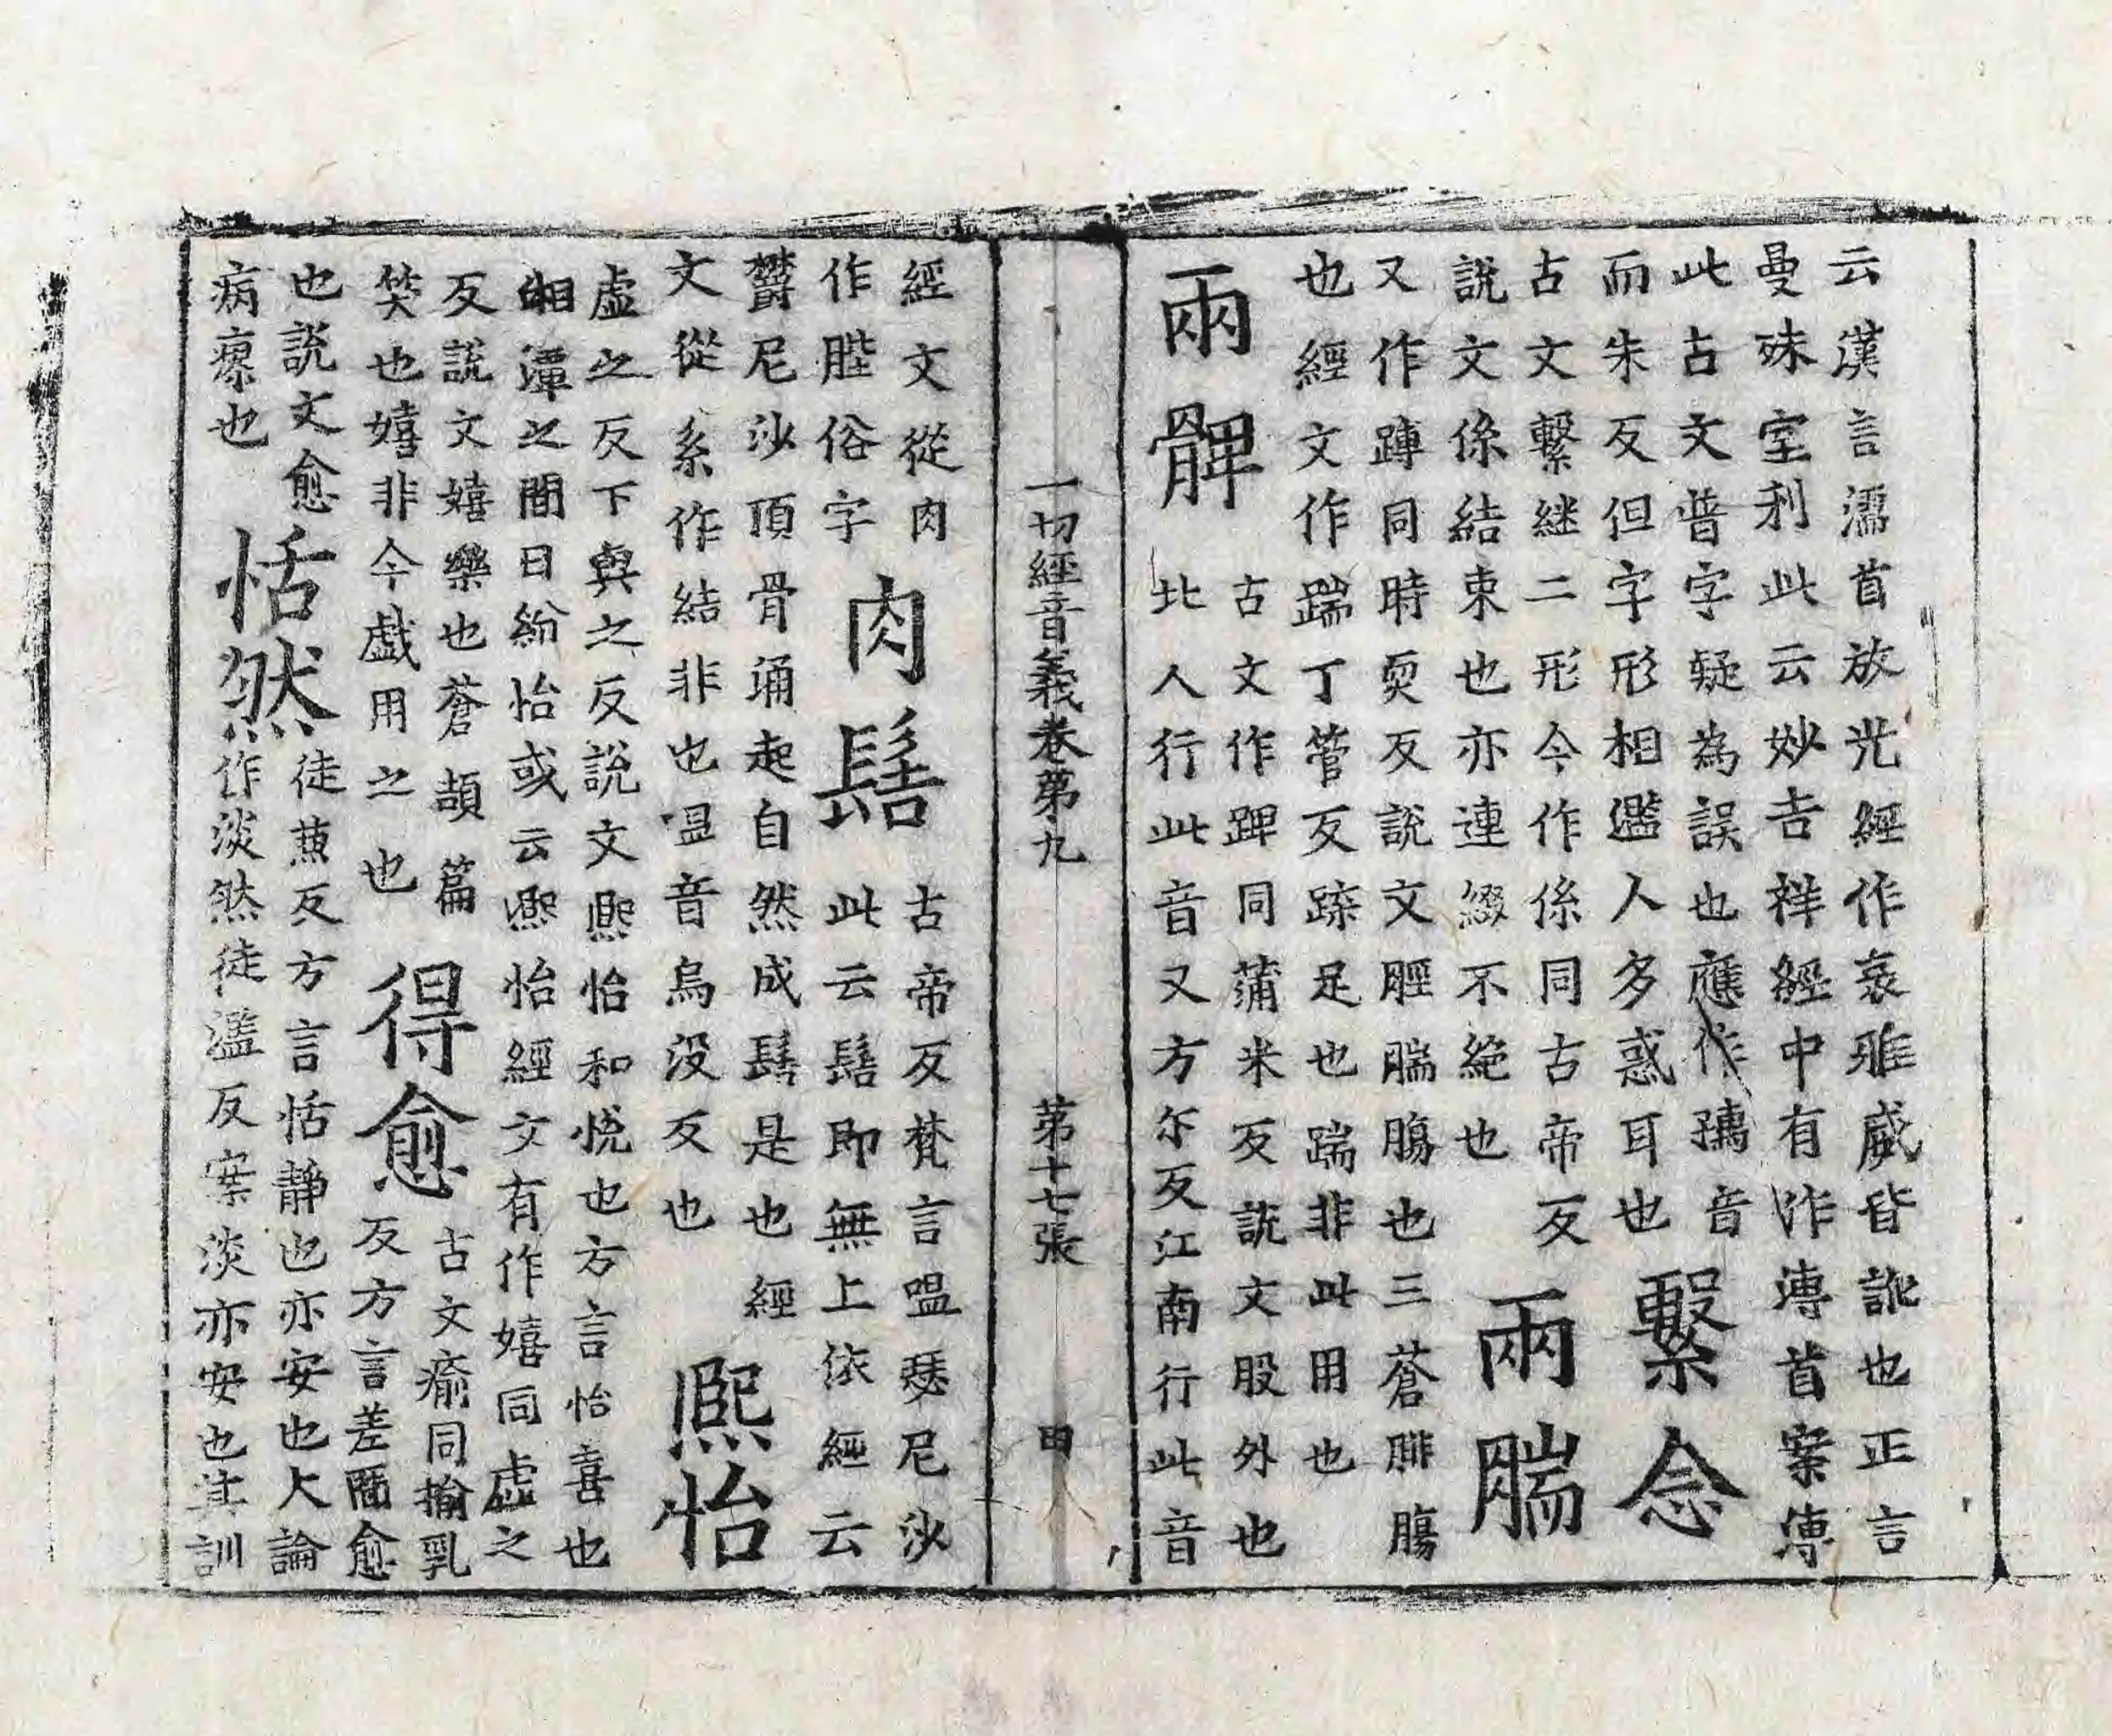 云漢言濡首放光經作哀雅威皆訛也正言
曼殊室利此云妙吉祥經中有作溥首案溥
此古文普字疑為誤也應作孺音
而朱反但字形相濫人多惑耳也
繫念
古文繫継二形今作係同古帝反
說文係結束也亦連綴不絕也
兩腨
又作蹲同時耎反說文脛腨腸也三蒼腓腸
也經文作踹丁管反䠱足也踹非此用也
兩髀
古文作踔同蒲米反說文股外也
北人行此音又方尒反江南行此音
一切經音義卷第九 第十七張 甲
經文從肉
作䏶俗字
肉髻
古帝反梵言嗢瑟尼沙
此云髻即無上依經云
欝尼沙頂骨涌起自然成髻是也經
文從糸作結非也嗢音烏沒反也
熈怡
虛之反下與之反說文熈怡和悅也方言怡喜也
湘潭之間曰紛怡或云熈怡經文有作嬉同虛之
反說文嬉樂也蒼頡篇
笑也嬉非今戲用之也
得愈
古文瘉同揄乳
反方言差間愈
也說文愈
病瘳也
恬然
徒兼反方言恬靜也亦安也大論
作淡然徒濫反案淡亦安也其訓